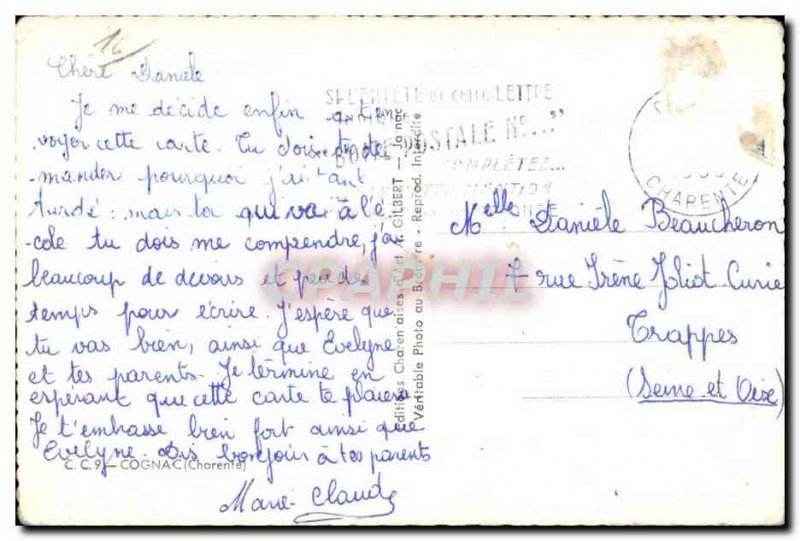 16
Chère Danièle
Je me décide enfin a t'en
voyer cette carte. Tu dois te de
mander pourquoi j'ai tant
tardé : mais toi qui va à l'é
cole tu dois me comprendre, j'ai
beaucoup de devoirs et peu de
temps pour écrire. J'espère que
tu vas bien, ainsi que Evelyne
et tes parents. Je termine en
espérant que cette carte te plaiera
Je t'embrasse bien fort ainsi que
Evelyne. Dis bonjour à tes parents
Marie-Claude
C. C. 9 - COGNAC (Charente)
Editions Charentaises d'Art A. GILBERT - Jarnac
Véritable Photo au Bromure - Reprod. Interdite
SI L'ENTÊTE DE CETTE LETTRE
BOITE POSTALE N°..."
COMPLÉTEZ...
CHARENTE
CPAPHIL
Melle Danièle Beaucheron
7 rue Irène Joliot Curie
Trappes
(Seine et Oise)